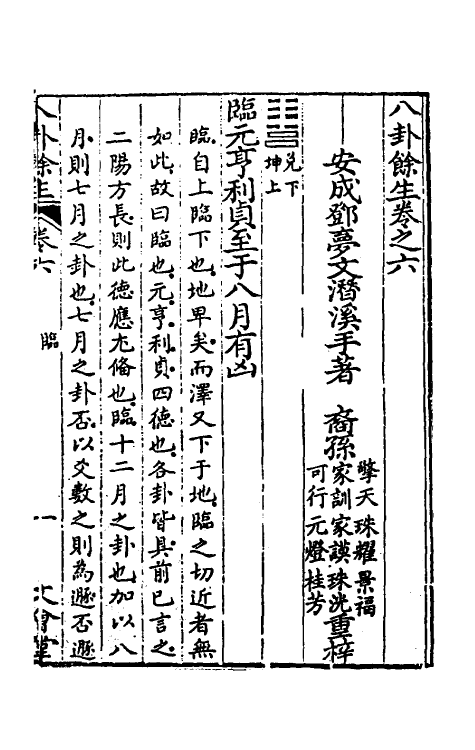 八卦餘生卷之六
安成鄧夢文潛溪手著　裔孫
擎天珠耀景福
家訓家謨珠洸
可行元燈桂芳
重梓
兌下
坤上
臨元亨利貞至于八月有凶
臨自上臨下也地卑矣而澤又下于地臨之切近者無
如此故曰臨也元亨利貞四德也各卦皆具前已言之
二陽方長則此德應尤備也臨十二月之卦也加以八
月則七月之卦也七月之卦否以爻數之則為遯否遯
八卦餘生　卷六
臨
一
文會堂